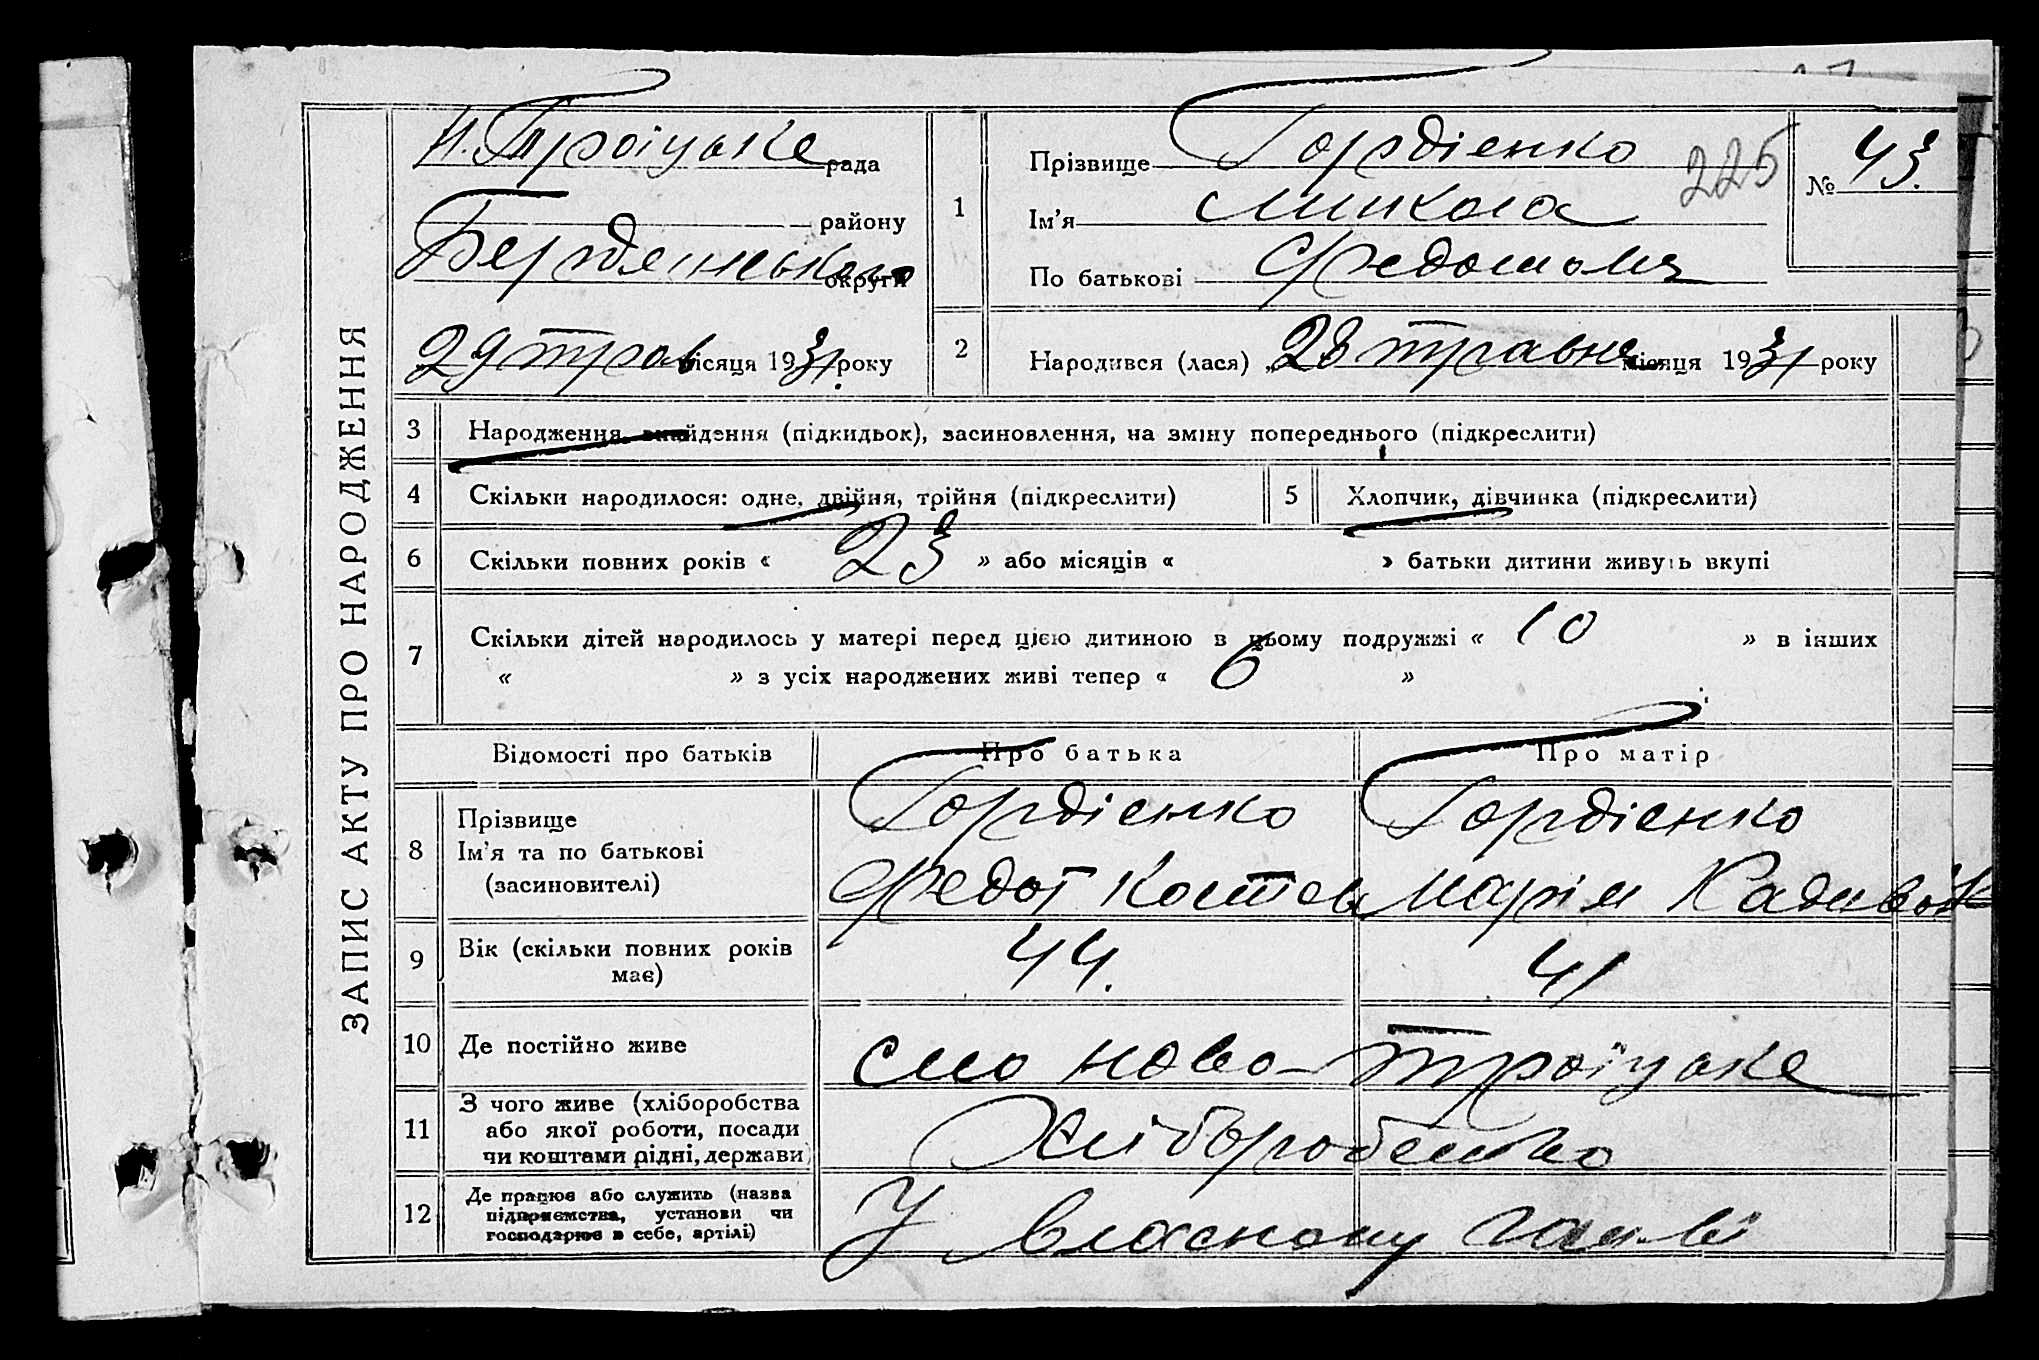 ЗАПИС АКТУ ПРО НАРОДЖЕННЯ
Н. Троїцьке рада
району
Бердянського округи
29 трав місяця 1931 року
1
Прізвище Гордієнко
225
№ 43.
Ім'я Микола
По батькові Федотов
2
Народився (лася) „28 травня місяця 1931 року
3 Народження, знайдення (підкидьок), засиновлення, на зміну попереднього (підкреслити)
4 Скільки народилося: одне, двійня, трійня (підкреслити)
5 Хлопчик, дівчинка (підкреслити)
6 Скільки повних років « 23 » або місяців « » батьки дитини живуть вкупі
7 Скільки дітей народилось у матері перед цією дитиною в цьому подружжі « 10 » в інших
« » з усіх народжених живі тепер « 6 »
Відомості про батьків Про батька Про матір
8 Прізвище Гордієнко Гордієнко
Ім'я та по батькові Федот Костев Марія
(засиновителі)
9 Вік (скільки повних років має) 44. 41
10 Де постійно живе село Ново-Троїцьке
11 З чого живе (хліборобства
або якої роботи, посади
чи коштами рідні, держави)
Хліборобство
12 Де працює або служить (назва
підприємства, установи чи
господарює в себе, артілі)
У власному